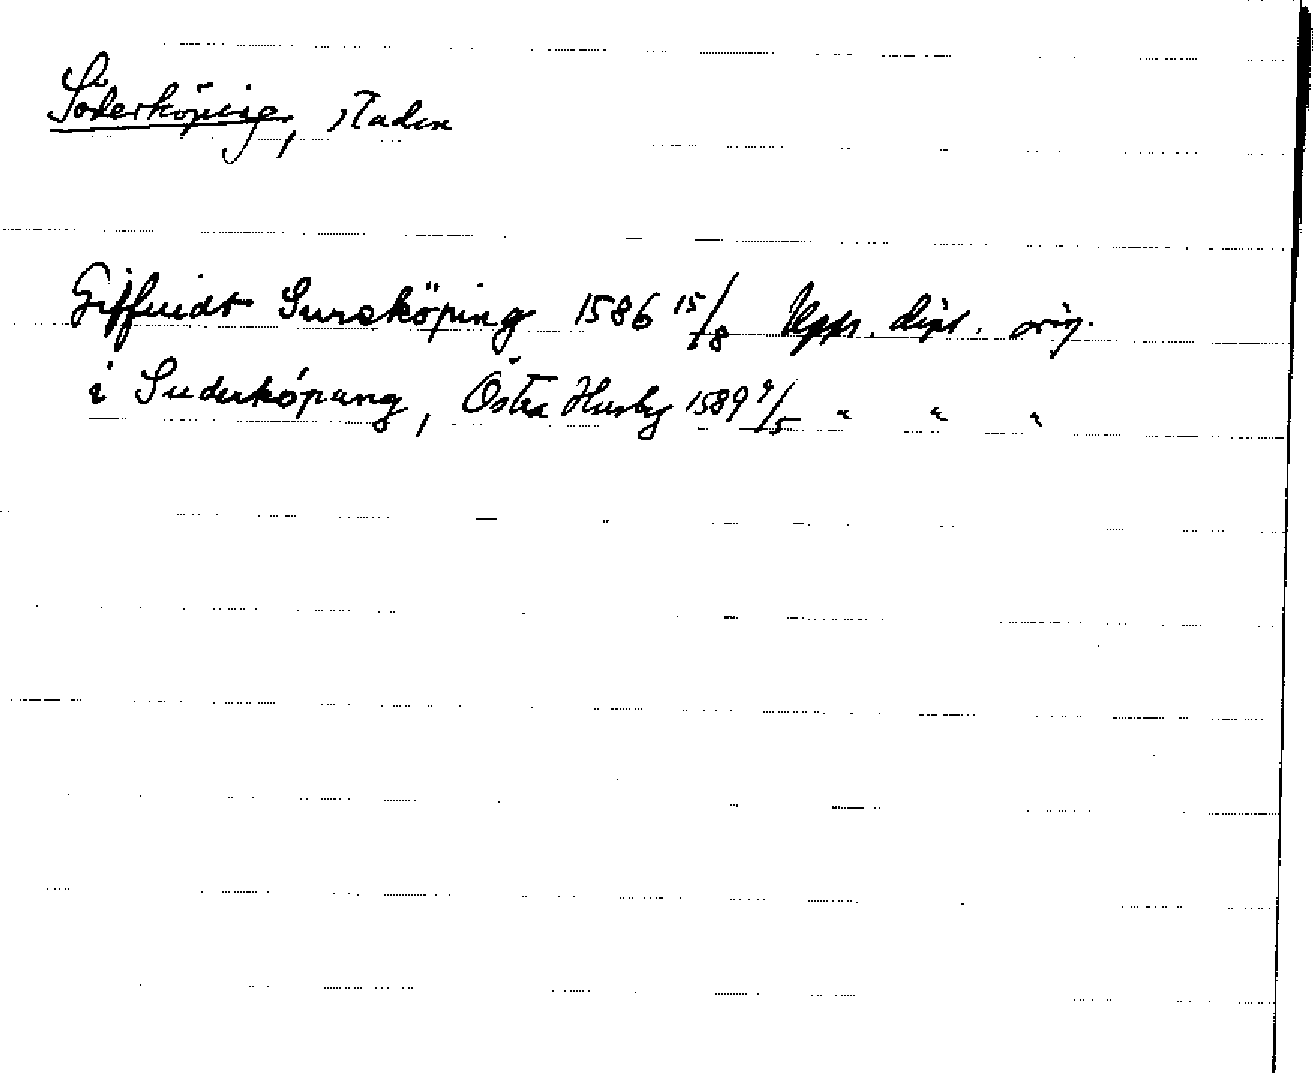 Söderköping, staden
Giffuidt Surcköping 1586 15/8 Upps. dipl. orig.
i Suderköpung, Östra Husby 1589 9/5 " " "